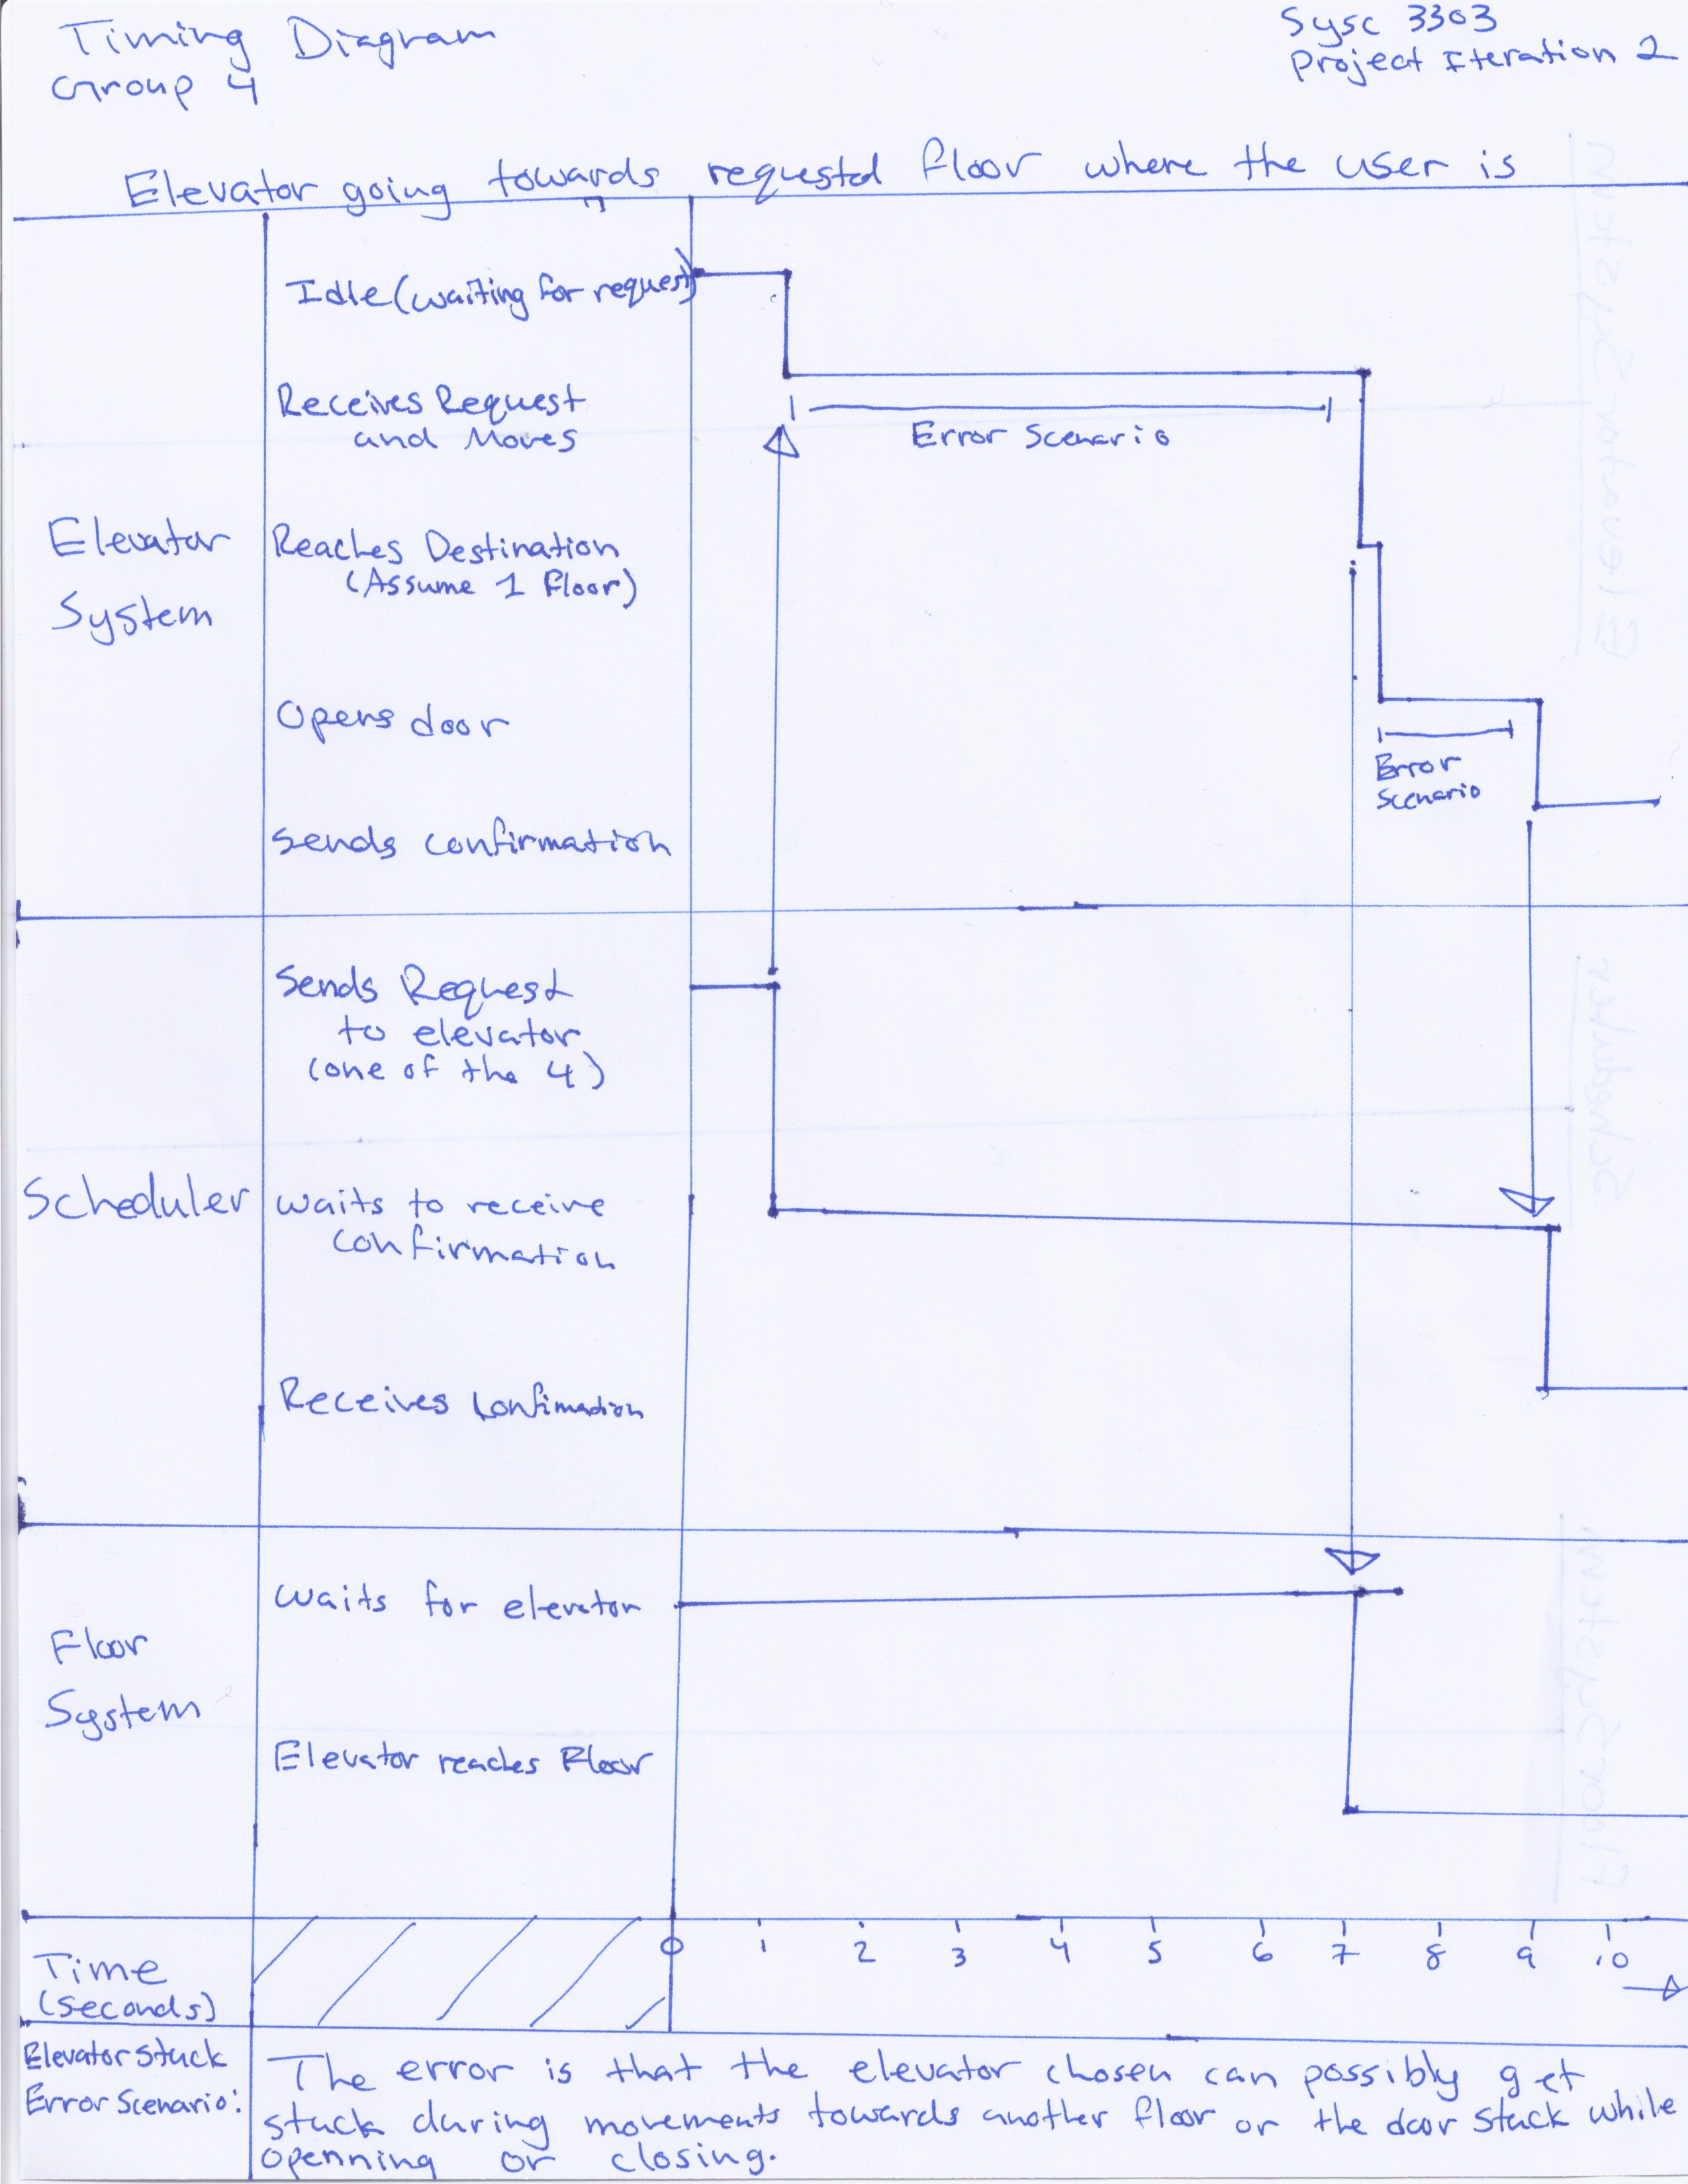 Timing Diagram
Group 4
Sysc 3303
Project Iteration 2
Elevator going towards requestd floor where the user is
Idle (waiting for request)
Receives Request
and Moves
Error Scenario
Elevator
System
Reaches Destination
(Assume 1 floor)
Opens door
Error
Scenario
Sends confirmation
Sends Request
to elevator
(one of the 4)
Scheduler
waits to receive
confirmation
Receives Confirmation
Floor
System
Waits for elevator
Elevator reaches Floor
Time
(seconds)
0 1 2 3 4 5 6 7 8 9 10
Elevator Stuck
Error Scenario:
The error is that the elevator chosen can possibly get
stuck during movements towards another floor or the door stuck while
openning or closing.
Elevator System
Scheduler
Floor System